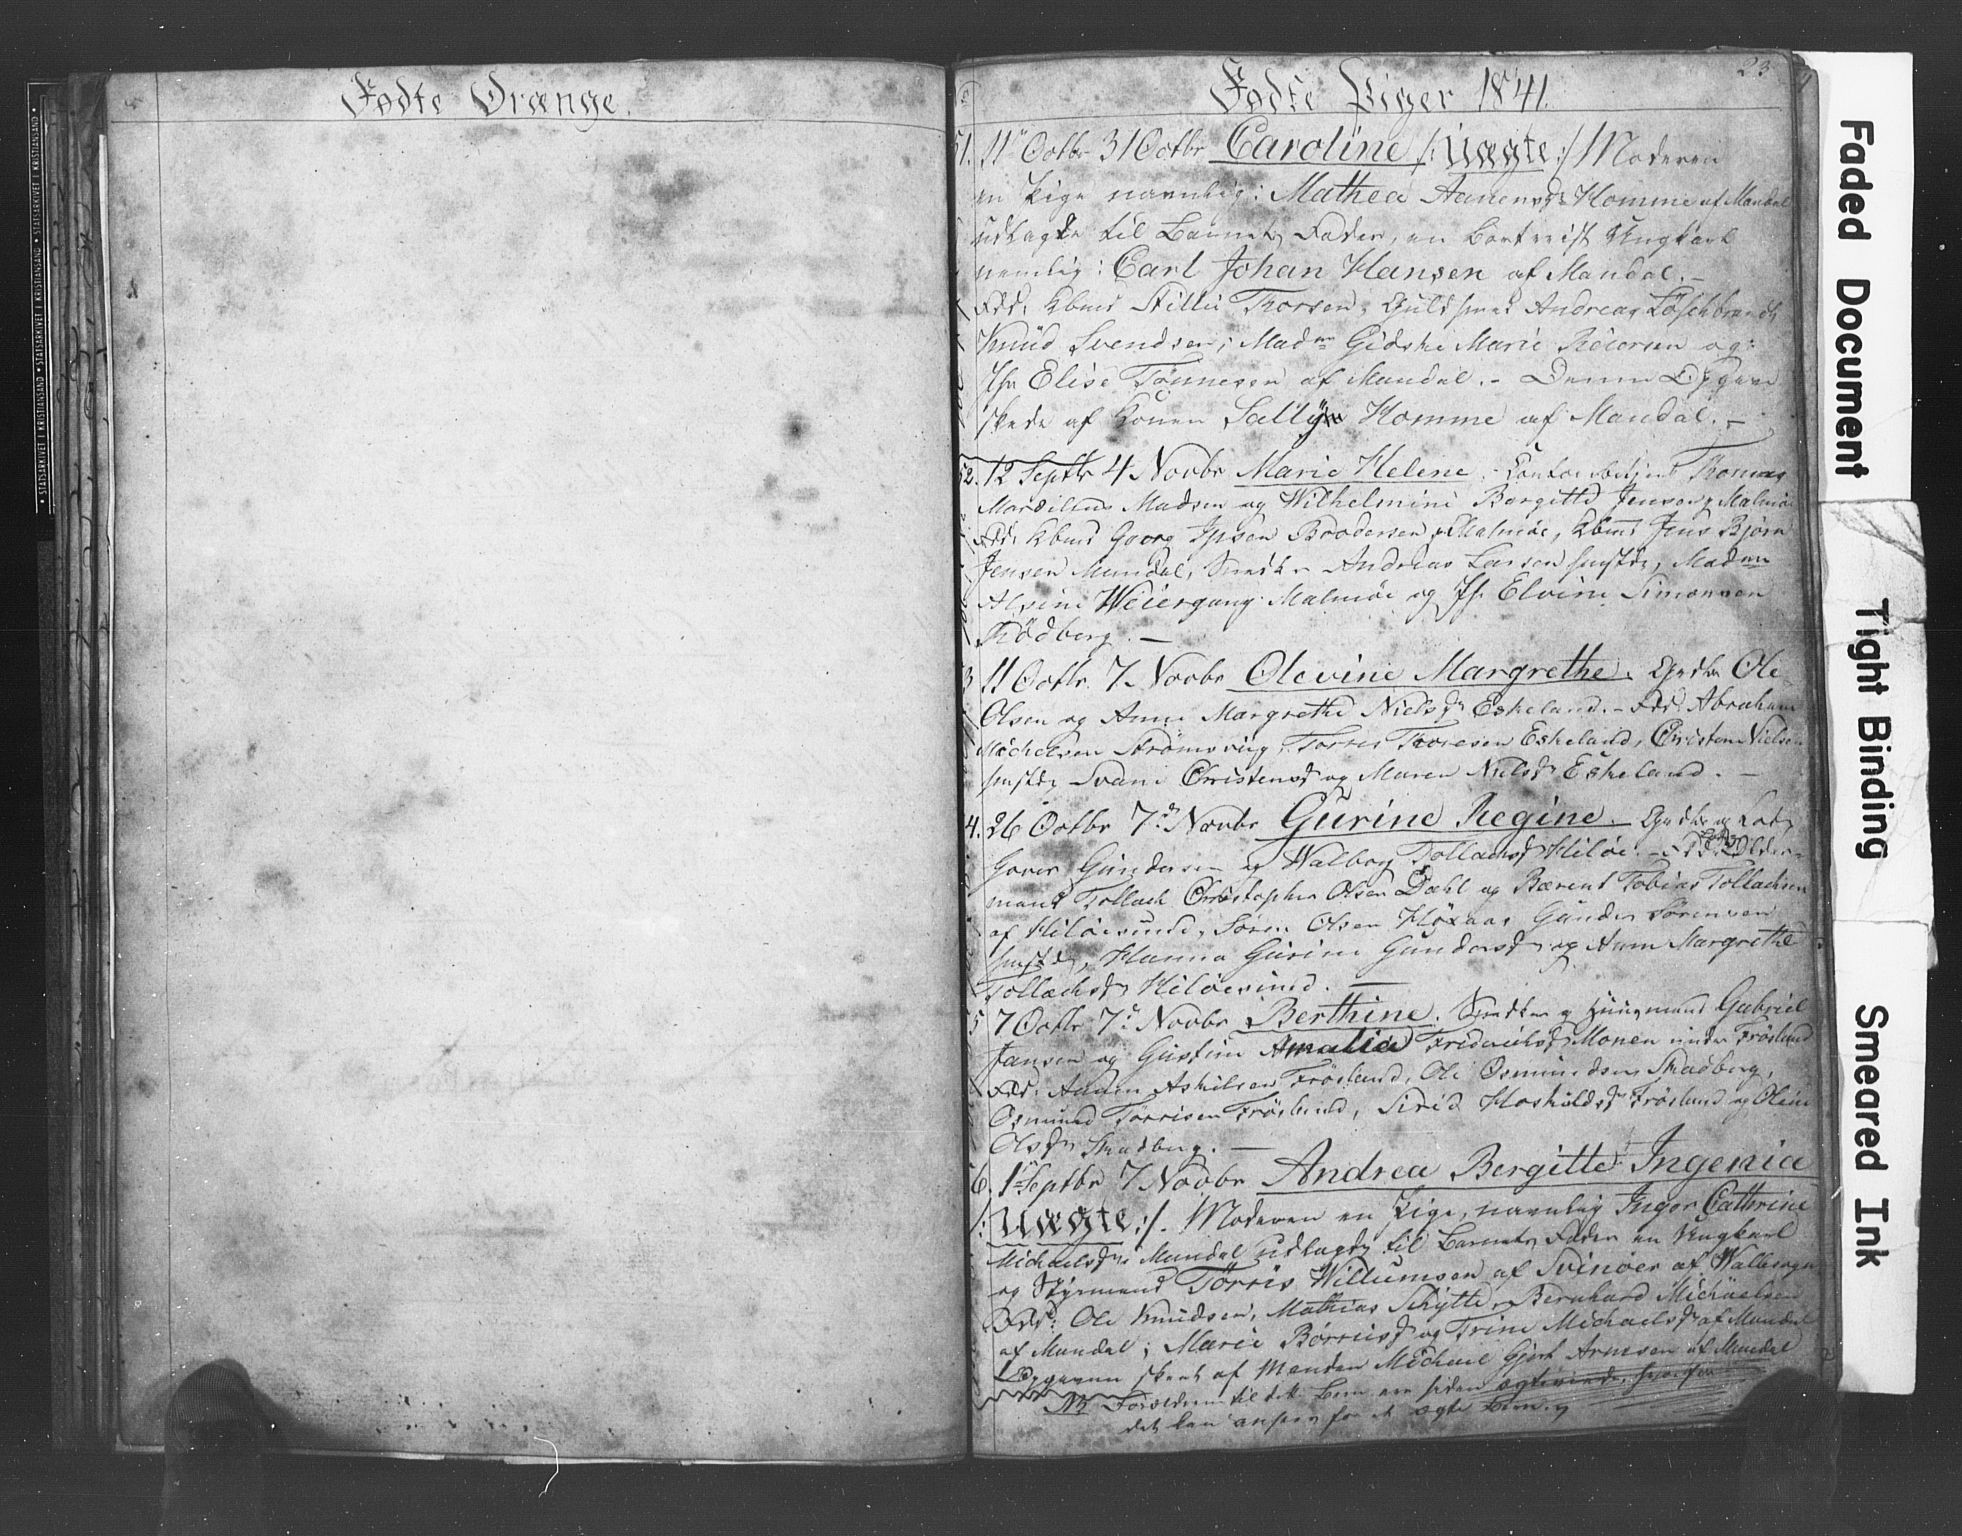 Fødte Drænge.
Fødte Piger 1841.
23
51. 11te Octbr 31 Octbr Caroline /: Uægte :/ Moderen
en Pige navnlig: Mathea Aanensd. Homme af Mandal
udlagde til Barnets Fader, en Ungkarl
nemlig: Carl Johan Hansen af Mandal. -
Fdd: Kbmd Thorsen, Guldsmed Andreas
Knud Svendsen, Madm Gidske Marie Reiersen og
Jfr Elise Tønnesen af Mandal. - Denne Opgave
skede af Konen Homme af Mandal. -
52. 12 Septbr 4 Novbr Marie Helene. Thomas
Madsen og Wilhelmine Bergitte Jensen, Malmøe
Fdd: Kbmd Georg Ipsen Brodersen, Malmøe, Kbmd Jens Bjørn
Jensen Mandal, Andreas Larsen Madm
Weiergang Malmøe og Jfr Elvine Simonsen
Rødberg. -
3 11 Octbr 7 Novbr Olevine Margrethe. Ole
Olsen og Anne Margrethe Nielsd. Eskeland. - Fdd: Abraham
Michelsen Strømsving, Torres Thoresen Eskeland, Christen Nielsen
Christensd. og Maren Nielsd. Eskeland. -
4. 26 Octbr 7de Novbr Gurine Regine. - og Lods
Gundersen og Walborg Tollachsd. Hiløe. - Fdd: Lods Older-
mand Tollach Christopher Olsen Dahl og Bærent Tobias Tollachsen
af Hiløesund, Søren Olsen Gunder Sørensen
Hanna Gurine Gundersd. og Anne Margrethe
Tollachsd. Hiløesund. -
5 7 Octbr 7de Novbr Berthine. og Gabriel
Jansen og Gustine Amalia Frederichsd. Monen under Frøsland
Fdd: Aanen Askilsen Frøsland, Ole Osmundsen Skadberg,
Osmund Torrisen Frøsland, Sirid Hoskuldsd. Frøsland og Oline
Olsd. Skadberg. -
6. 1te Septbr 7 Novbr Andrea Bergitte Ingenia
/: Uægte :/. Moderen en Pige, navnlig Inger Cathrine
Michaelsd. Mandal udlagde til Barnets Fader en Ungkarl
og Styrmand Tørris Willumsen af Svinøer af Wallesogn
Fdd: Ole Knudsen, Mathias Schytte, Bernhard Michaelsen
af Mandal; Marie og Trine Michaelsd. af Mandal
Opgaven skeet af Manden Michael Gjert Arnesen af Mandal
NB Forældrene til dette Barn ere siden
det kan ansees for et ægte Barn.
Faded Document
Tight Binding
Smeared Ink
STATSARKIVET I KRISTIANSAND • STATSARKIVET I KRISTIANSAND • STATSARKIVET I KRISTIANSAND